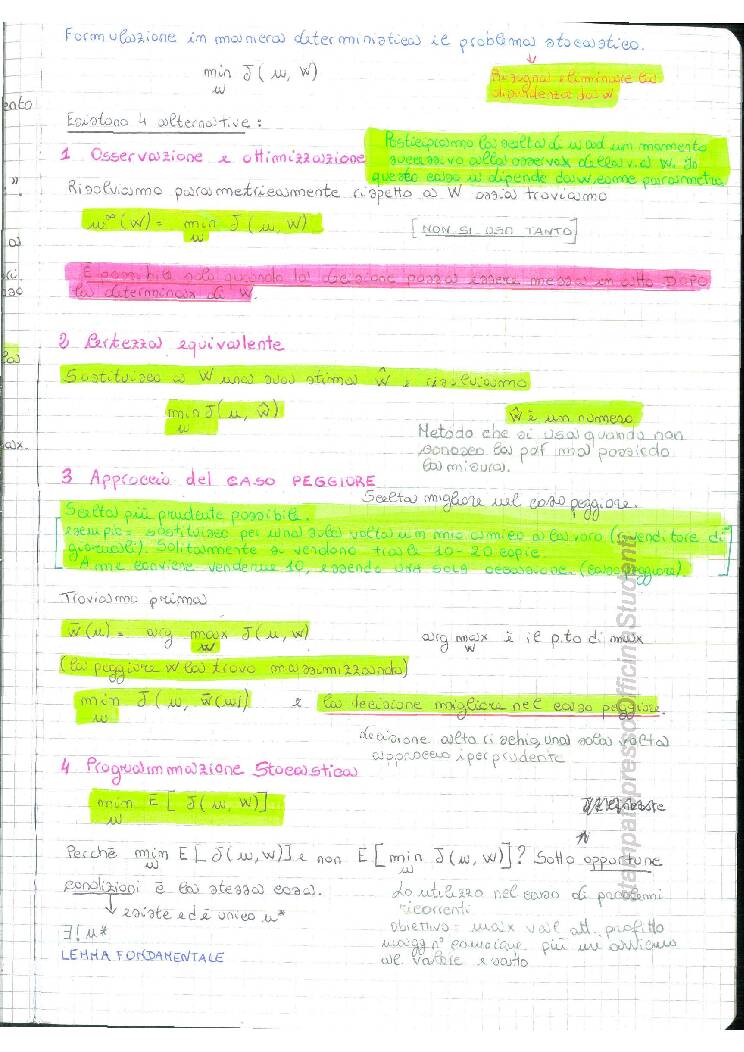 Formulazione in maniera deterministica il problema stocastico.
min J(u, w)
u
Bisogna eliminare la
dipendenza da w
ento
Esistono 4 alternative:
1 Osservazione e ottimizzazione
Posticipiamo la scelta di u ad un momento
successivo alla osservaz della v.a W. In
questo caso u dipende da w come parametro
".
Risolviamo parametricamente rispetto a W ossia troviamo
u°(W) = min J(u, W)
u
[NON SI USA TANTO]
È possibile solo quando la decisione possa essere messa in atto DOPO
la determinaz di W.
2 Certezza equivalente
Sostituisco a W una sua stima ŵ e risolviamo
min J(u, ŵ)
u
ŵ è un numero
Metodo che si usa quando non
conosco la pdf ma possiedo
la misura.
3 Approccio del CASO PEGGIORE
Scelta migliore nel caso peggiore.
Scelta più prudente possibile.
esempio = sostituisco per una sola volta un mio amico a lavoro (rivenditore di
giornali). Solitamente si vendono tra le 10-20 copie.
A me conviene venderne 10, essendo una sola occasione. (caso peggiore)
Troviamo prima
w̄(u) = arg max J(u, w)
w
arg max è il p.to di max
w
(la peggiore w la trovo massimizzando)
min J(u, w̄(u))
u
e la decisione migliore nel caso peggiore.
decisione alto rischio, una sola volta
approccio iperprudente
4 Programmazione Stocastica
min E[J(u, w)]
u
Perchè min E[J(u,w)] e non E[min J(u, w)]? Sotto opportune
u
condizioni è la stessa cosa.
↓ esiste ed è unico u*
∃! u*
LEMMA FONDAMENTALE
Lo utilizzo nel caso di problemi
ricorrenti
obiettivo = max val att. profitto
magg n° più mi avvicino
al valore esatto
stampato presso OfficinaStudenti